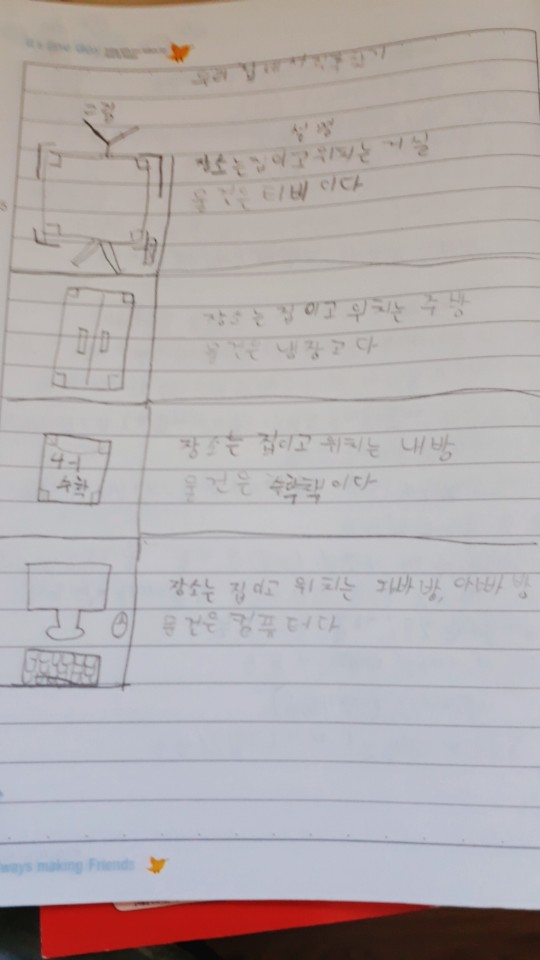 그림
설명
장소는 집이고 위치는 거실
물건은 티비 이다
장소는 집이고 위치는 주방
물건은 냉장고다
4-1
수학
장소는 집이고 위치는 내방
물건은 수학책이다
장소는 집이고 위치는 아빠방
물건은 컴퓨터다
ways making Friends